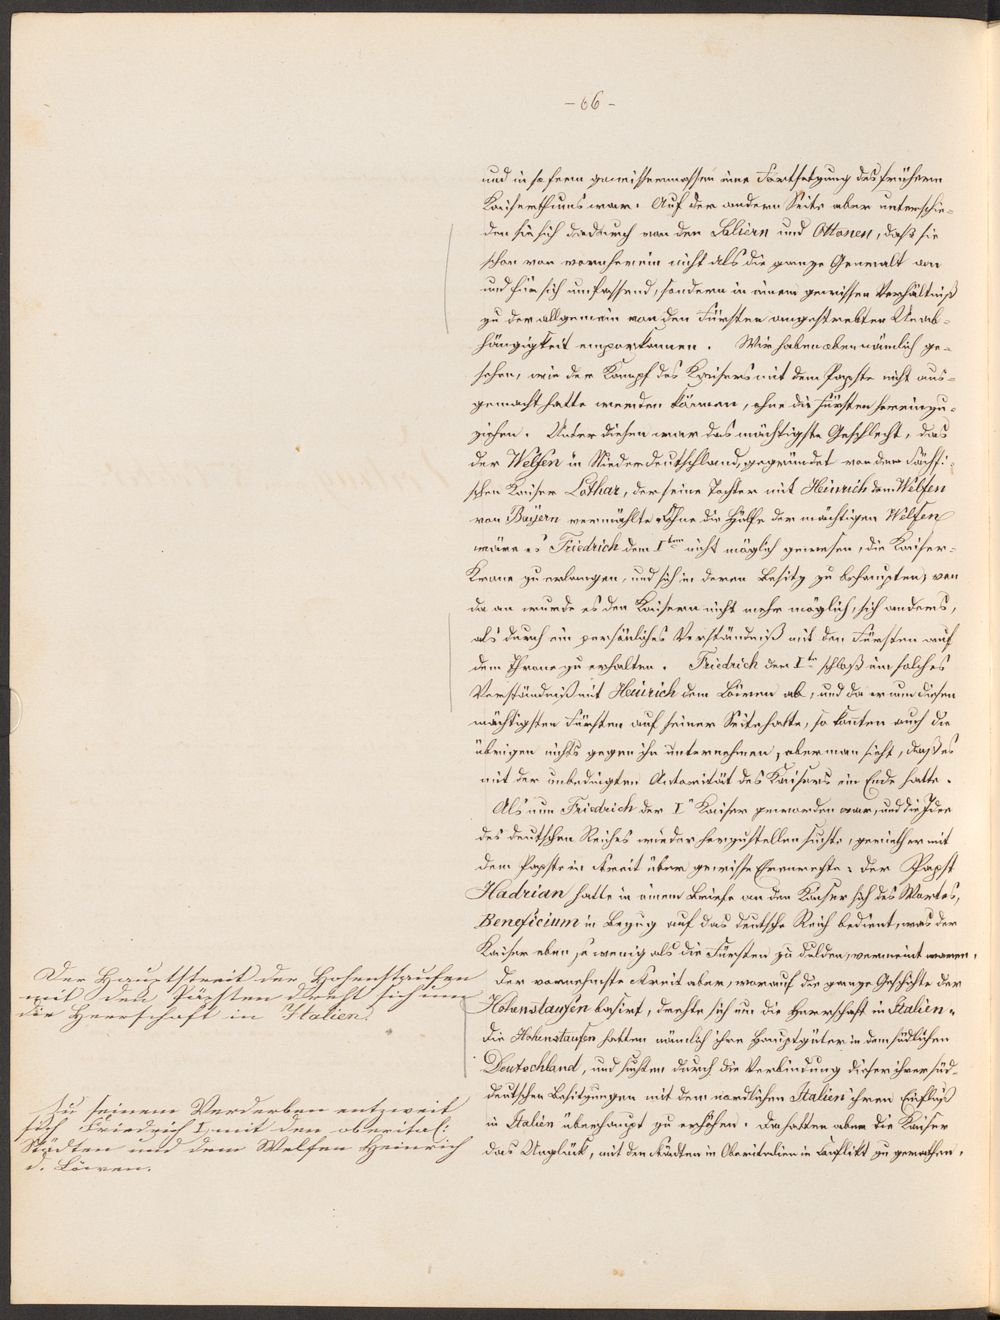 - 66 -
und in so fern gewissermassen eine Fortsetzung des frühern
Kaiserthums war. Auf der andern Seite aber unterschie-
den sie sich dadurch von den Saliern und Ottonen, daß sie
schon von vornherein nicht als die ganze Gewalt an
und für sich umfassend, sondern in einem gewissen Verhältniß
zu der allgemein von den Fürsten angestrebten Unab-
hängigkeit emporkamen. Wir haben oben nämlich ge-
sehen, wie der Kampf des Kaisers mit dem Papste nicht aus-
gemacht hatte werden können, ohne die Fürsten hereinzu-
ziehen. Unter diesen war das mächtigste Geschlecht, das
der Welfen in Niederdeutschland, gegründet von dem Sächsi-
schen Kaiser Lothar, der seine Tochter mit Heinrich dem Welfen
von Bayern vermählte. Ohne die Hülfe der mächtigen Welfen
wäre es Friedrich dem I.ten nicht möglich gewesen, die Kaiser-
Krone zu erlangen, und sich in deren Besitz zu behaupten, von
da an wurde es den Kaisern nicht mehr möglich, sich anders,
als durch ein persönliches Verständniß mit den Fürsten auf
dem Throne zu erhalten. Friedrich der I.te schloß ein solches
Verständniß mit Heinrich dem Löwen ab, und da er nun diesen
mächtigsten Fürsten auf seiner Seite hatte, so konten auch die
übrigen nichts gegen ihn unternehmen, aber man sieht, daß es
mit der unbedingten Autorität des Kaisers ein Ende hatte.
Als nun Friedrich der I. Kaiser geworden war, und die Idee
des deutschen Reiches wieder herzustellen suchte, gerieth er mit
dem Papste in Streit über gewisse Ehrenrechte: der Papst
Hadrian hatte in einem Briefe an den Kaiser sich des Wortes,
Beneficium in Bezug auf das deutsche Reich bedient, was der
Kaiser eben so wenig als die Fürsten zu dulden, vermeint waren.
Der vornehmste Streit aber, worauf die ganze Geschichte der
Hohenstaufen basirt, drehte sich um die Herrschaft in Italien.
Die Hohenstaufen hatten nämlich ihre Hauptgüter in dem südlichen
Deutschland, und suchten durch die Verbindung dieser ihrer süd-
deutschen Besitzungen mit dem nördlichen Italien ihren Einfluß
in Italien überhaupt zu erhöhen. Da hatten aber die Kaiser
das Unglück, mit den Städten in Oberitalien in Conflikt zu gerathen,
Der Hauptstreit der Hohenstaufen
mit den Päpsten dreht sich um
die Herrschaft in Italien.
Zu seinem Verderben entzweit
sich Friedrich I. mit den oberital:
Städten und dem Welfen Heinrich
d. Löwen.